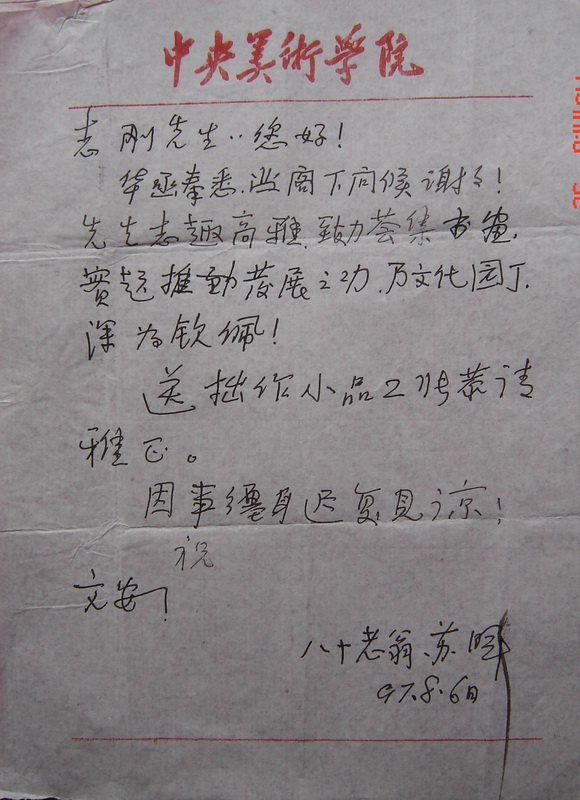 中央美術学院
志刚先生：您好！
华函奉悉，
阁下问候谢谢！
先生志趣高雅，致力荟集书画，
實起推動发展之功，乃文化园丁，
深为钦佩！
送拙作小品二张恭请
雅正。
因事缠身迟复见谅！
祝
文安！
八十老翁 苏晖
97.8.6日